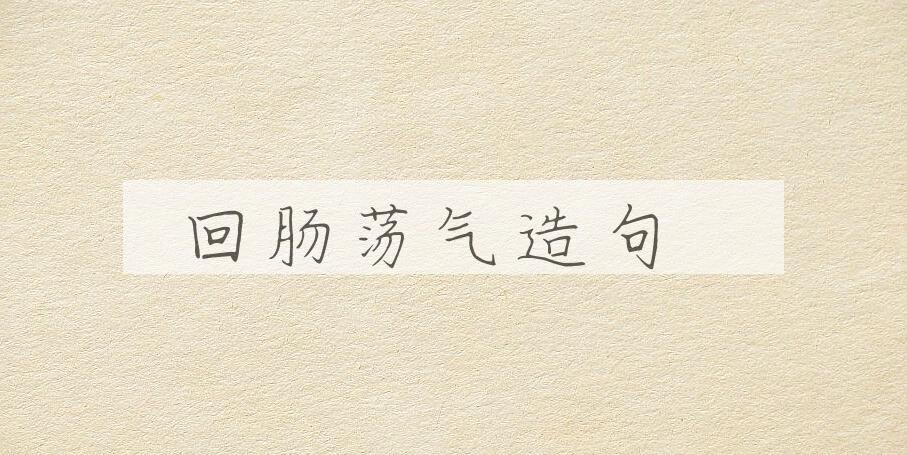 回肠荡气造句